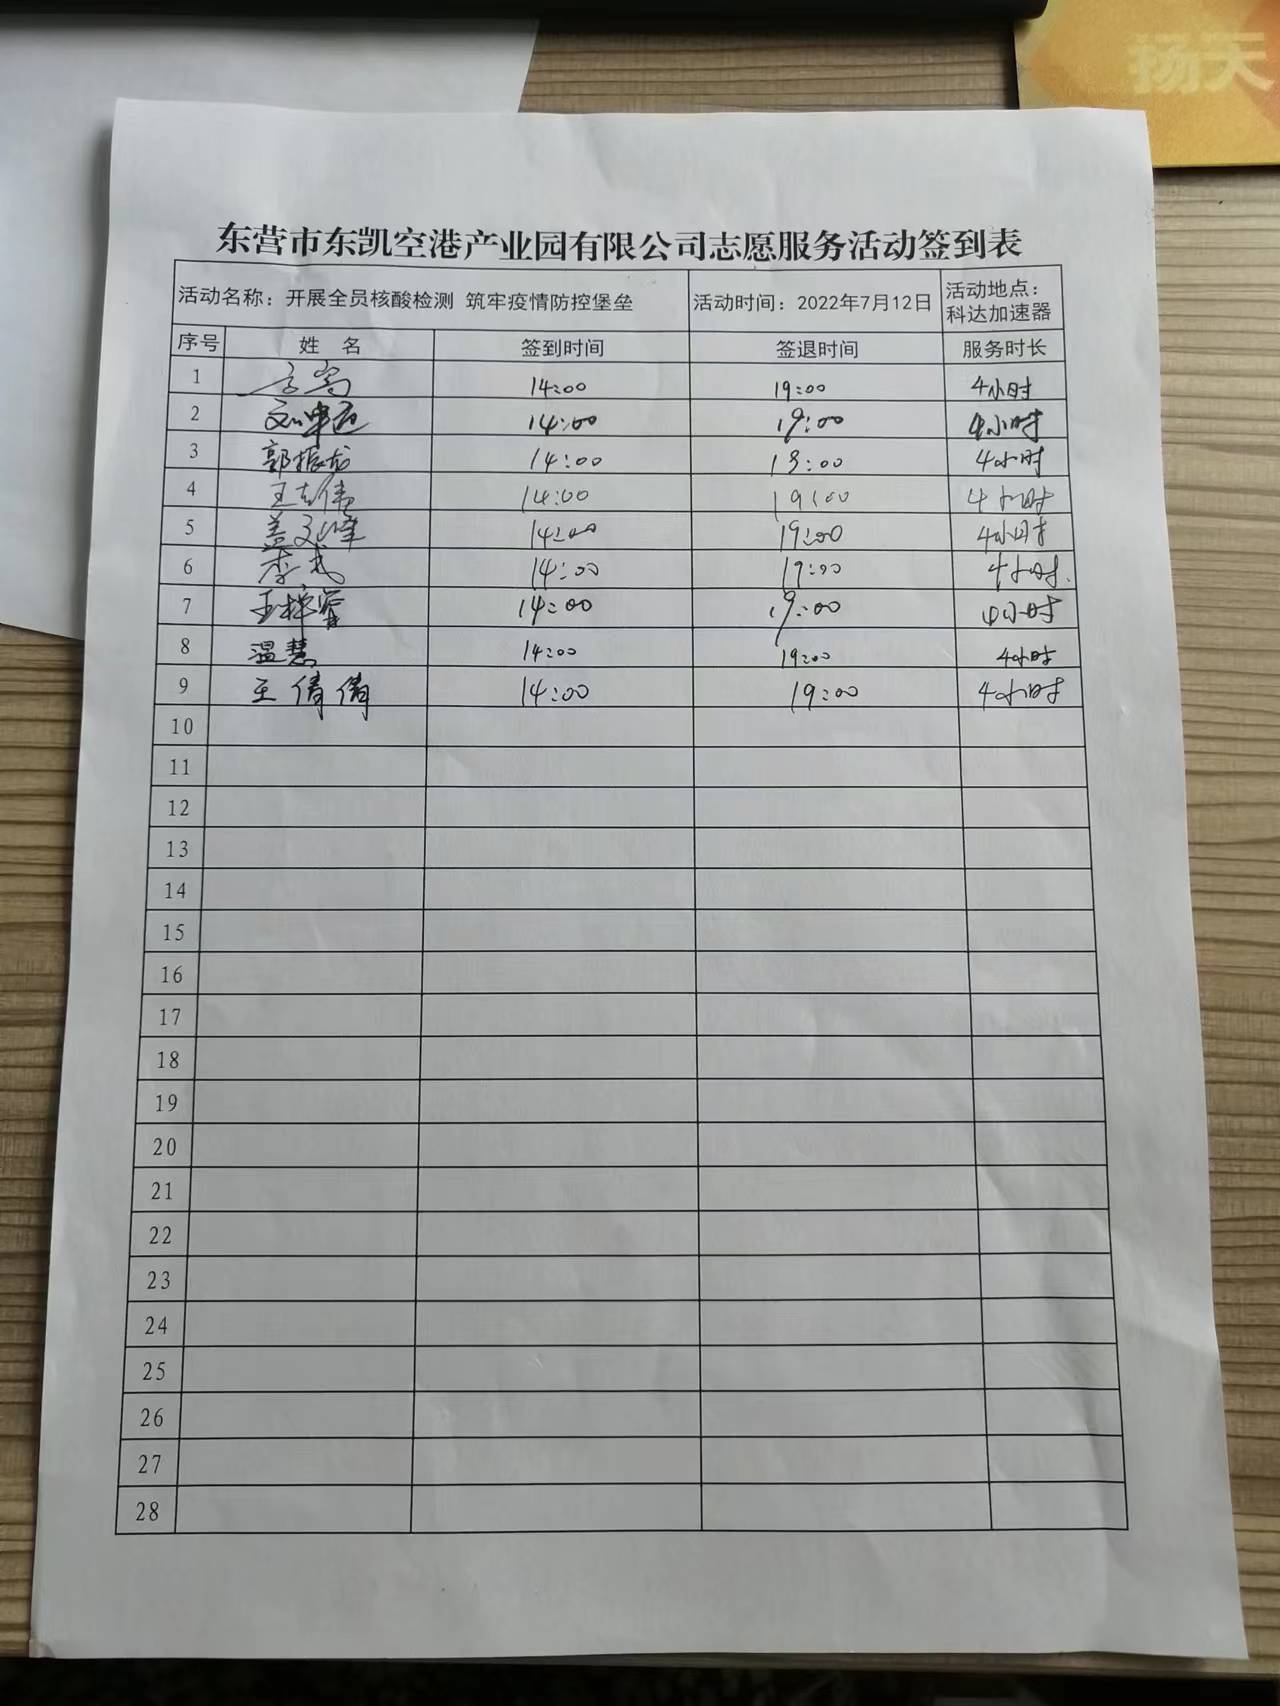 扬天
东营市东凯空港产业园有限公司志愿服务活动签到表
活动名称：开展全员核酸检测 筑牢疫情防控堡垒 活动时间：2022年7月12日 活动地点：科达加速器
序号 姓 名 签到时间 签退时间 服务时长
1 14:00 19:00 4小时
2 14:00 19:00 4小时
3 郭振龙 14:00 19:00 4小时
4 王志伟 14:00 19:00 4小时
5 盖文峰 14:00 19:00 4小时
6 李武 14:00 19:00 4小时.
7 王梓睿 14:00 19:00 4小时
8 温慧 14:00 19:00 4小时
9 王倩倩 14:00 19:00 4小时
10
11
12
13
14
15
16
17
18
19
20
21
22
23
24
25
26
27
28